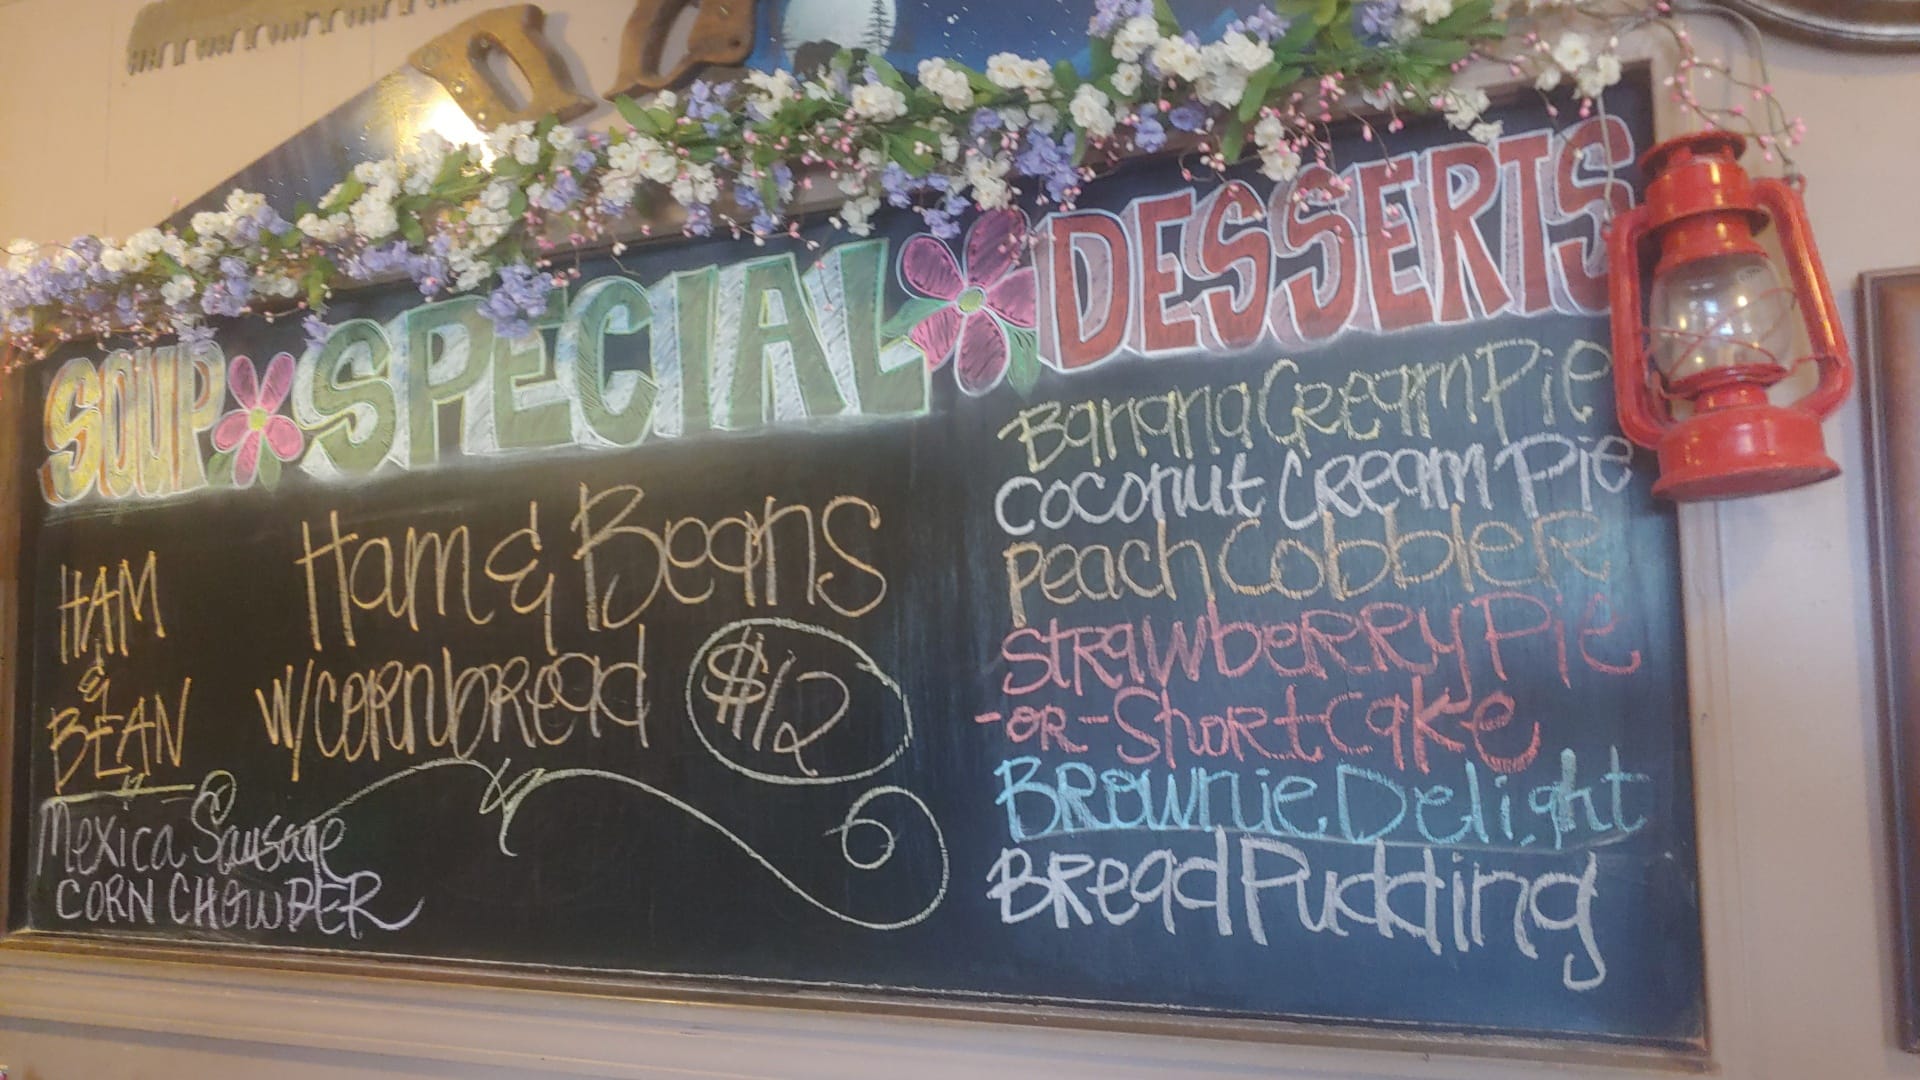 SOUP SPECIAL DESSERTS
HAM
&
BEAN
Mexica Sausage
CORN CHOWDER
Ham & Beans
w/cornbread $12
Banana Cream Pie
Coconut Cream Pie
Peach Cobbler
Strawberry Pie
-or- Shortcake
Brownie Delight
Bread Pudding